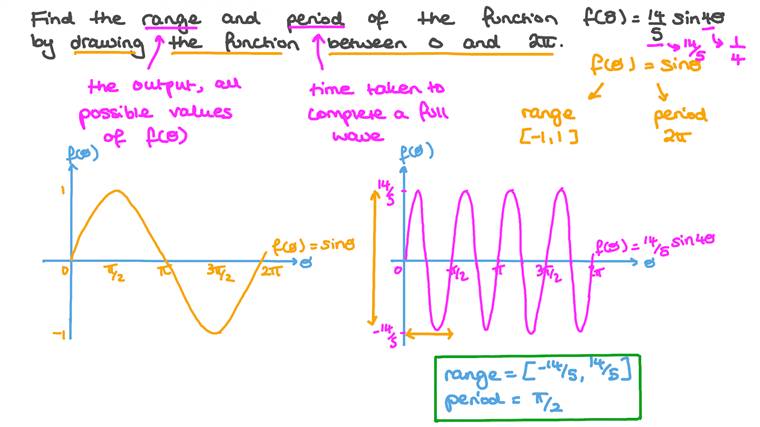 Find the range and period of the function f(θ) = 14/5 sin4θ
by drawing the function between 0 and 2π.
→ 14/5 → 1/4
f(θ) = sinθ
the output, all
possible values
of f(θ)
time taken to
complete a full
wave
range
[-1, 1]
period
2π
f(θ)
1
f(θ) = sinθ
0 π/2 π 3π/2 2π θ
-1
f(θ)
14/5
f(θ) = 14/5 sin4θ
0 π/2 π 3π/2 2π θ
-14/5
range = [-14/5, 14/5]
period = π/2